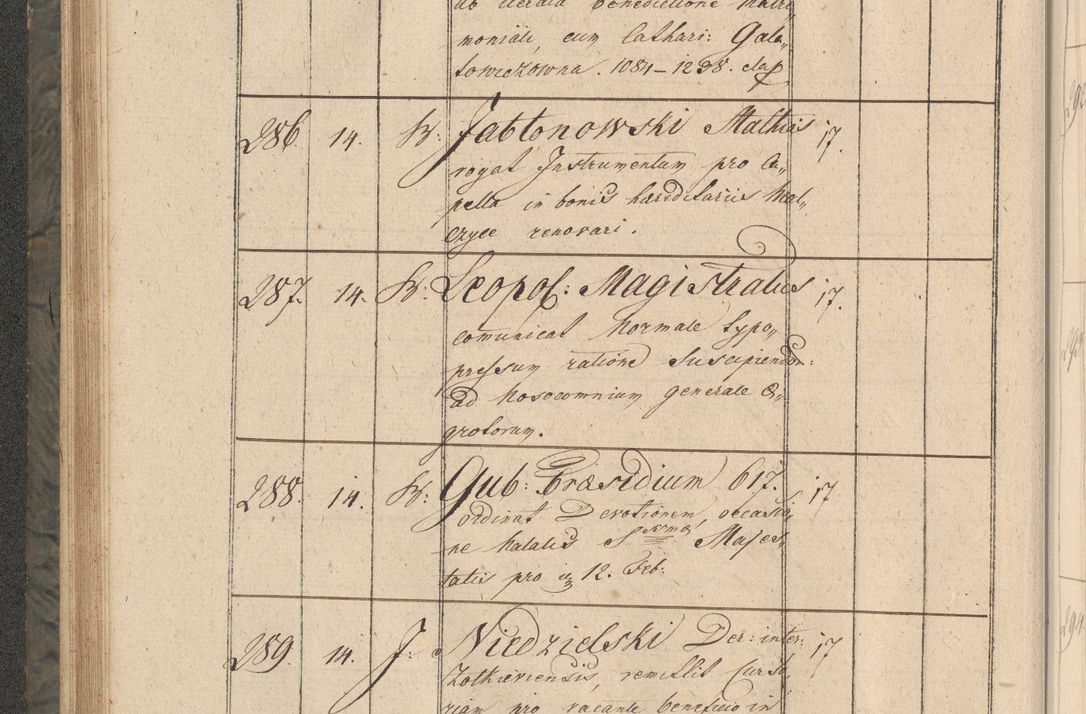 ab iterata benedictione matri„
moniali, cum Cathari: Gala„
towiczowna. 1084–1238.
286. 14. Jabłonowski Mathias 17.
rogat Instrumentum pro Ca„
pella in bonis hæreditariis Mal„
czyce renovari.
287. 14. Leopol: Magistratus 17.
comunicat Normale typo„
pressum ratione suscipiendor:
ad Nosocomnium generale Æ„
grotorum.
288. 14. Gub: Præsidium 617. 17
ordinat Devotionem, occasio„
ne Natalis Suæ Majes„
tatis pro 12. Feb:
289. 14. J: Niedzielski Der: inter: 17
Zolkieviensis, remittit Curren„
pro vacante beneficio in